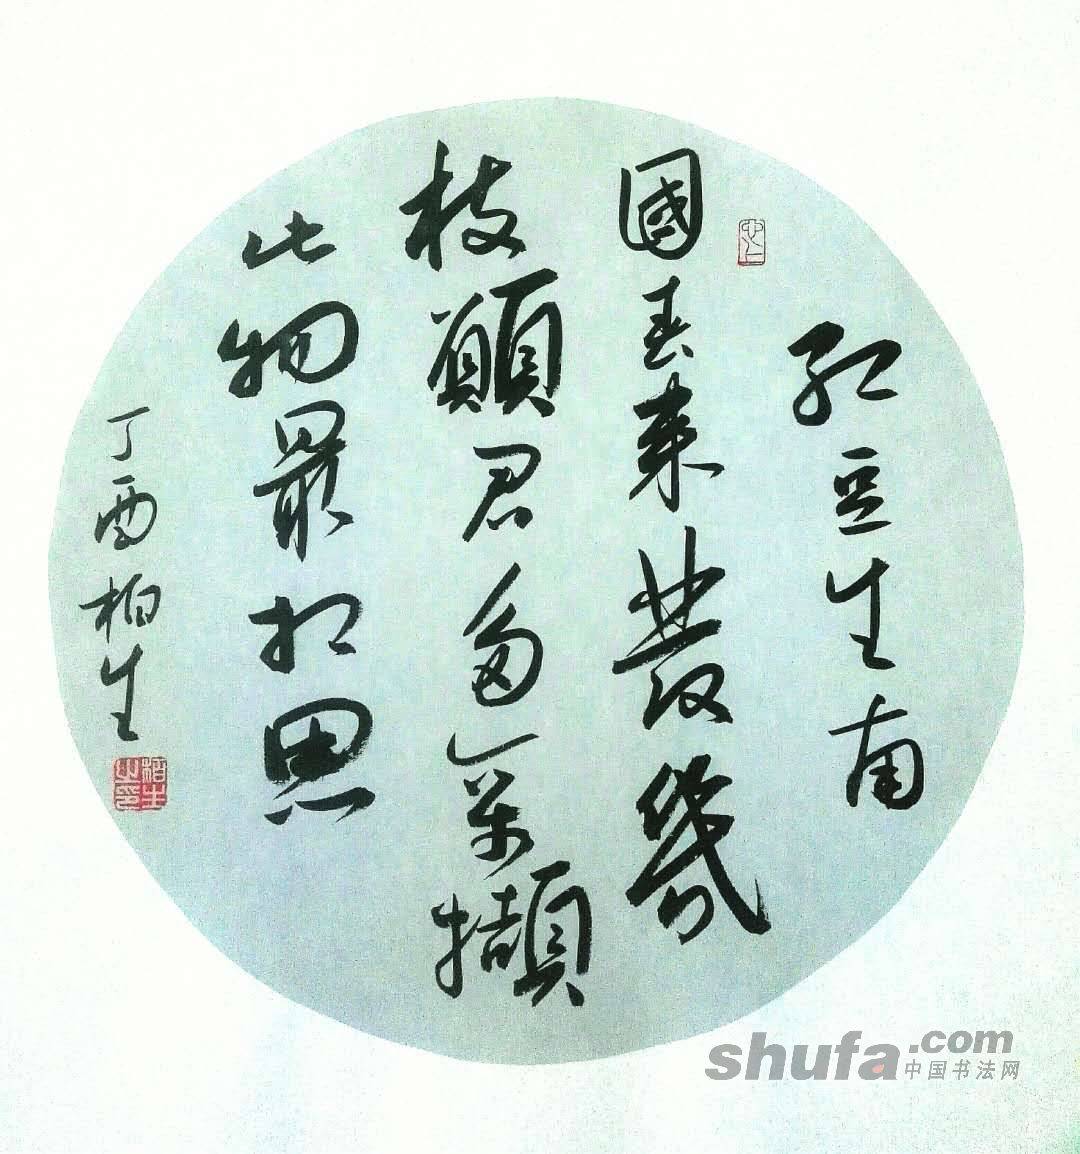 紅豆生南
國春来發幾
枝願君多采擷
此物最相思
丁酉柏生
柏生之印
shufa.com
中国书法网